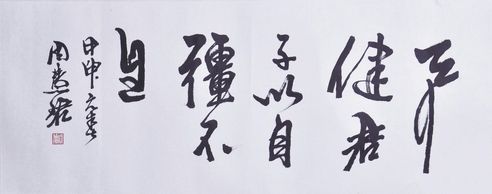 天行
健君
子以自
彊不
息
甲申春
周慧珺